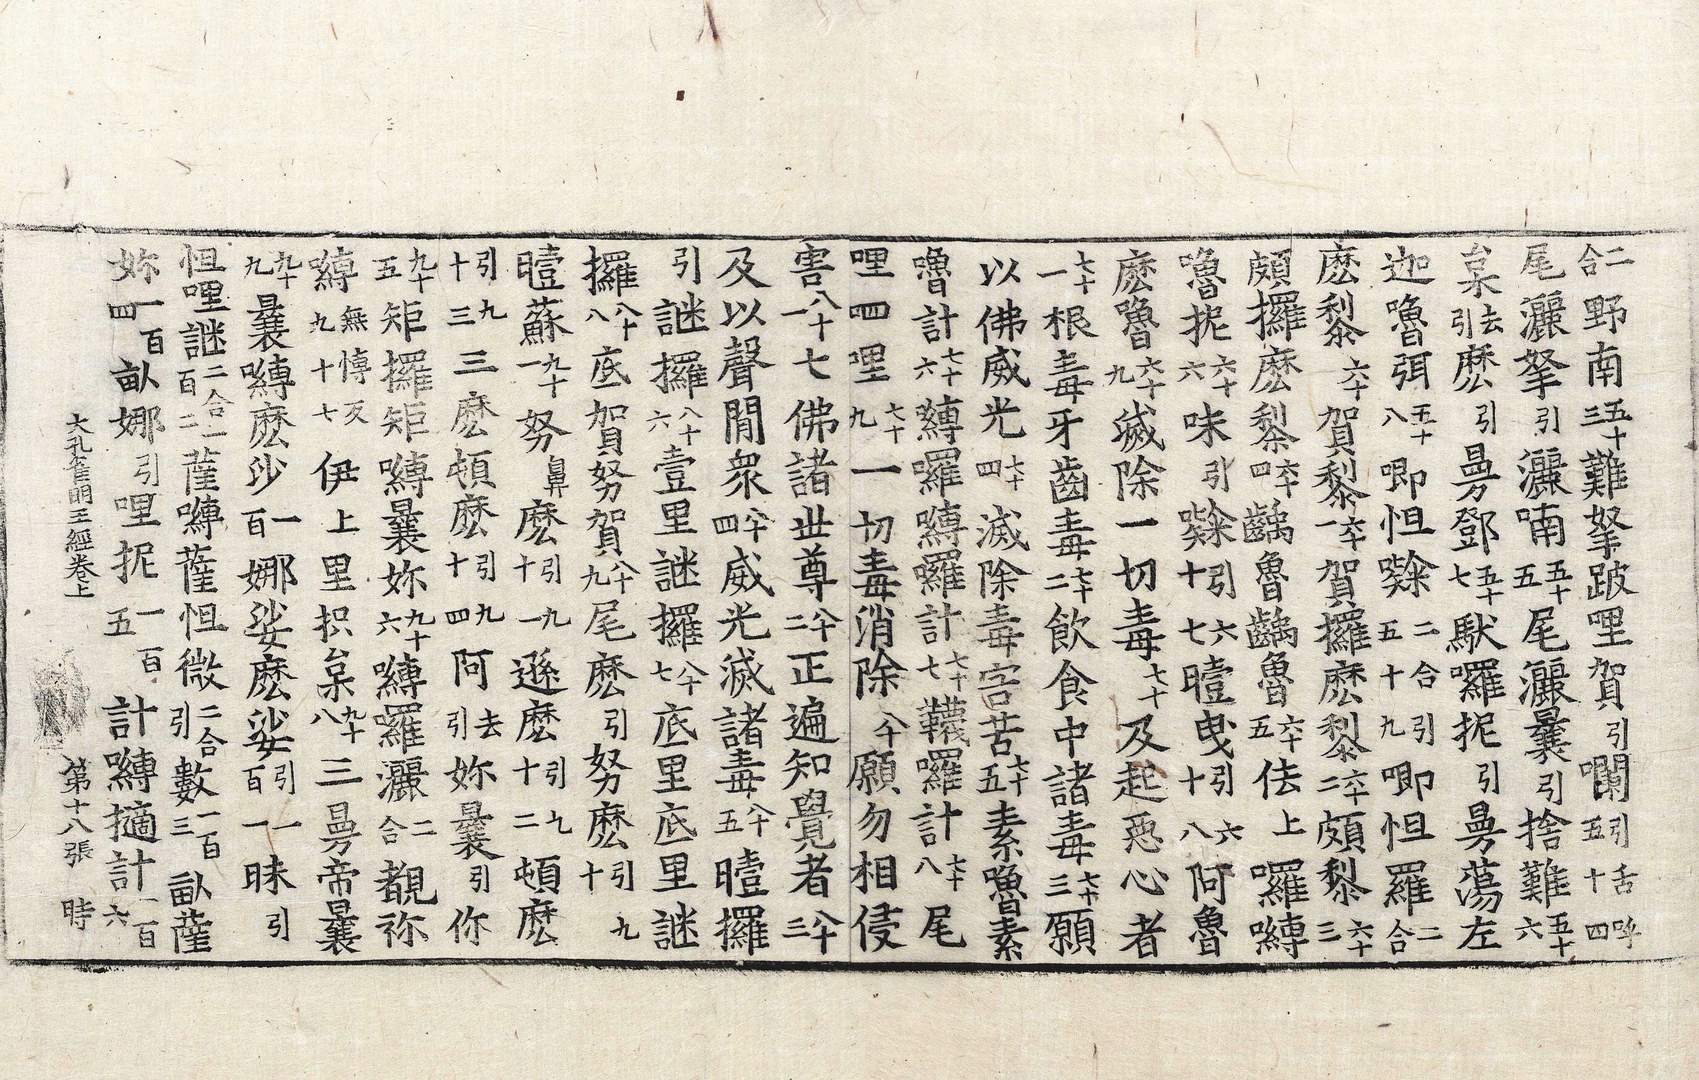 二合野南五十三難拏跛哩賀引囒引舌呼五十四
尾灑拏引灑喃五十五尾灑曩引捨難五十六
枲去引麽引曼鄧五十七馱囉抳引曼蕩左
迦嚕弭五十八唧怛㘑二合引五十九唧怛羅二合
嚕抳六十六咪引㘑引六十七曀曳引六十八阿魯
麽嚕六十九滅除一切毒七十及起惡心者
七十一根毒牙齒毒七十二飲食中諸毒七十三願
以佛威光七十四滅除毒害苦七十五素嚕素
嚕計七十六嚩囉嚩囉計七十七韈囉計七十八尾
哩四哩七十九一切毒消除八十願勿相侵
害八十一七佛諸世尊八十二正遍知覺者八十三
及以聲聞衆八十四威光滅諸毒八十五曀攞
引謎攞八十六壹里謎攞八十七底里底里謎
攞八十八底賀努賀八十九尾麽引努麽引九十
曀蘇九十一努鼻麽引九十一遜麽引九十二頓麽
引九十三三麽頓麽引九十四阿去引妳曩引你
九十五矩攞矩嚩曩妳九十六嚩囉灑二合覩祢
嚩無慱反九十七伊上里抧枲九十八三曼帝曩
九十九曩嚩麽沙一百娜娑麽娑引一百一昧引
怛哩謎二合一百二薩嚩薩怛微二合引數一百三畝薩
妳一百四畝娜引哩抳一百五計嚩擿計一百六
大孔雀明王經卷上 第十八張 時